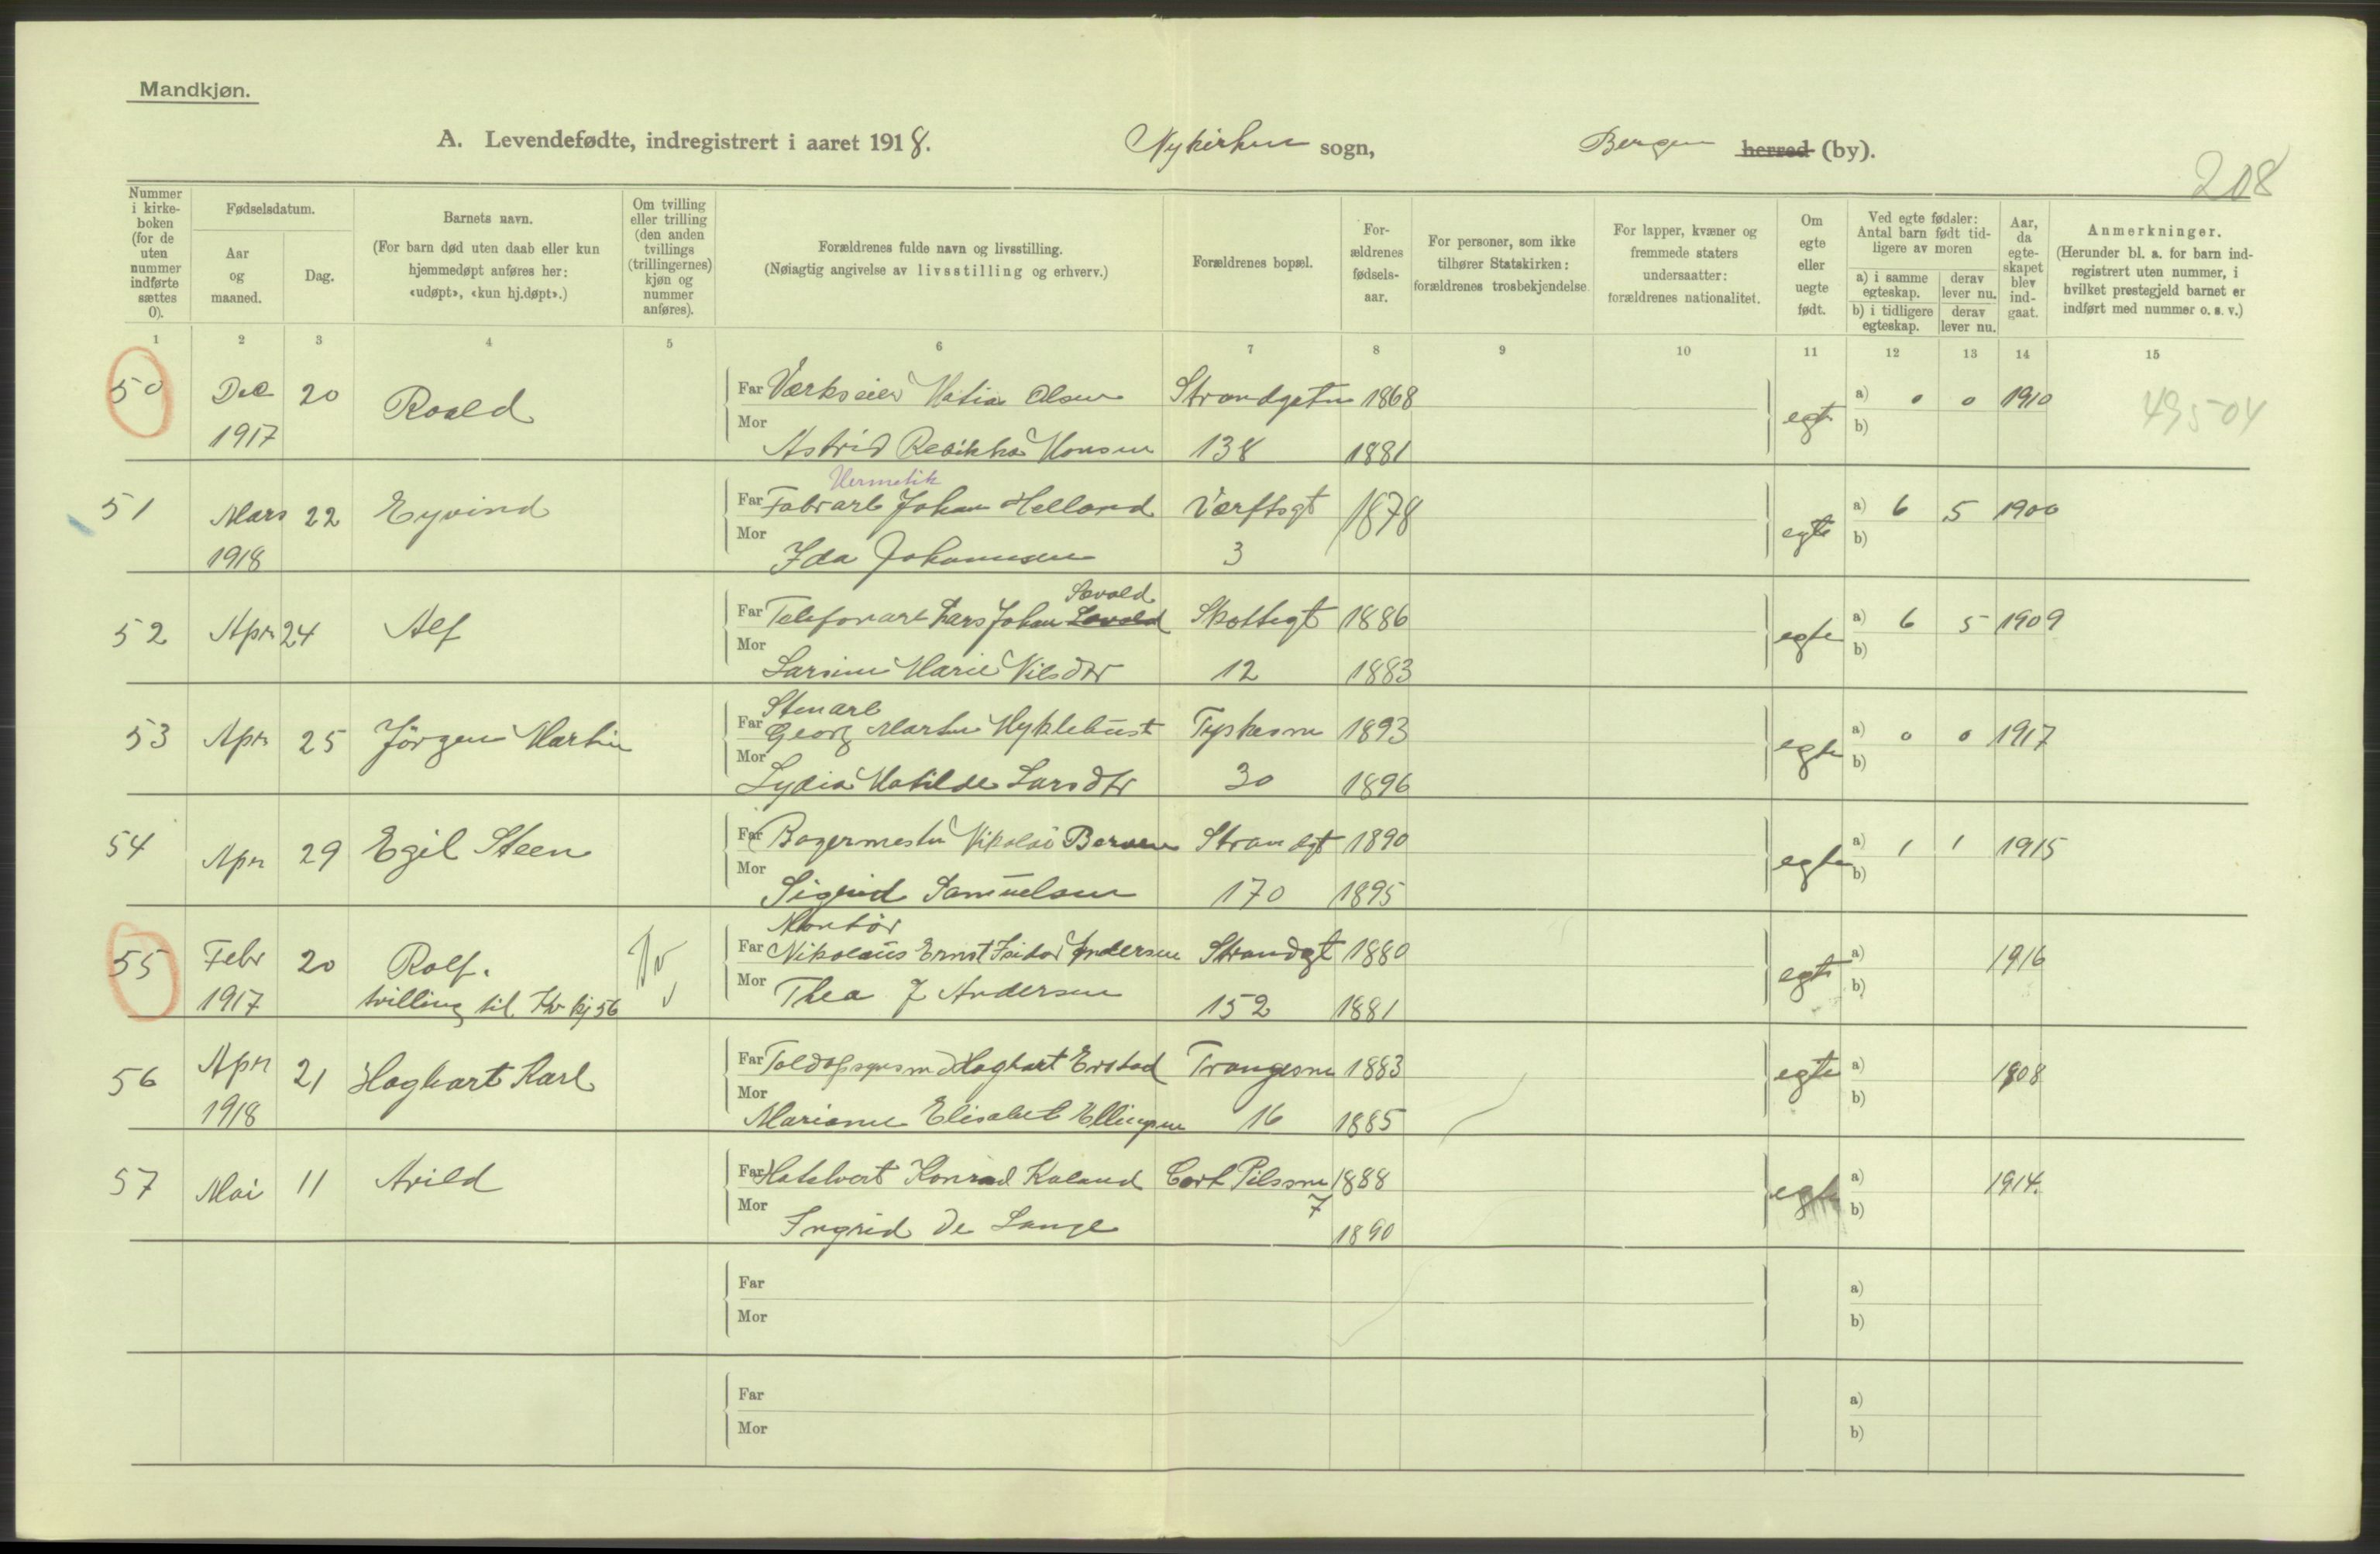 Mandkjøn.
A. Levendefødte, indregistrert i aaret 1918. Nykirken sogn, Bergen herred (by).
208
Nummer i kirkeboken (for de uten nummer indførte sættes 0).
Fødselsdatum.
Aar og maaned.
Dag.
Barnets navn.
(For barn død uten daab eller kun hjemmedøpt anføres her: «udøpt», «kun hj.døpt».)
Om tvilling eller trilling (den anden tvillings (trillingernes) kjøn og nummer anføres).
Forældrenes fulde navn og livsstilling.
(Nøiagtig angivelse av livsstilling og erhverv.)
Forældrenes bopæl.
Forældrenes fødselsaar.
For personer, som ikke tilhører Statskirken: forældrenes trosbekjendelse.
For lapper, kvæner og fremmede staters undersaatter: forældrenes nationalitet.
Om egte eller uegte født.
Ved egte fødsler: Antal barn født tidligere av moren
a) i samme egteskap. derav lever nu.
b) i tidligere egteskap. derav lever nu.
Aar, da egteskapet blev indgaat.
Anmerkninger.
(Herunder bl. a. for barn indregistrert uten nummer, i hvilket prestegjeld barnet er indført med nummer o. s. v.)
1 2 3 4 5 6 7 8 9 10 11 12 13 14 15
50 Dec 20 Roald Far Værkseier Olsen Strandgaten 1868 egte a) 0 0 1910 49504
1917 Mor Astrid Monsen 138 1881 b)
Hermetik
51 Mars 22 Eyvind Far Fabrarb Johan Helland Værftsgt 1878 egte a) 6 5 1900
1918 Mor Ida Johannesen 3 b)
Søvold
52 Apr 24 Alf Far Telefonarb Lars Johan Skottegt 1886 egte a) 6 5 1909
Mor Larsine Marie Nilsdtr 12 1883 b)
Stenarb
53 Apr 25 Jörgen Martin Far Georg Martin Myklebust Tyskesm 1893 egte a) 0 0 1917
Mor Lydia Matilde Larsdtr 30 1896 b)
54 Apr 29 Egil Steen Far Bagermester Nikolai Strandgt 1890 egte a) 1 1 1915
Mor Sigrid Samuelsen 170 1895 b)
Montör
55 Febr 20 Rolf. Far Nikolaus Ernst Isidor Andersen Strandgt 1880 egte a) 1916
1917 tvilling til Kv kj 56 Mor Thea J Andersen 152 1881 b)
56 Apr 21 Hagbart Karl Far Toldopsynsm Hagbart Erstad Trangesm 1883 egte a) 1908
1918 Mor Marianne Elisabet Ellingsen 16 1885 b)
57 Mai 11 Arild Far Konrad Kaland Cort Pilssm 1888 egte a) 1914.
7
Mor Ingrid De Lange 1890 b)
Far a)
Mor b)
Far a)
Mor b)